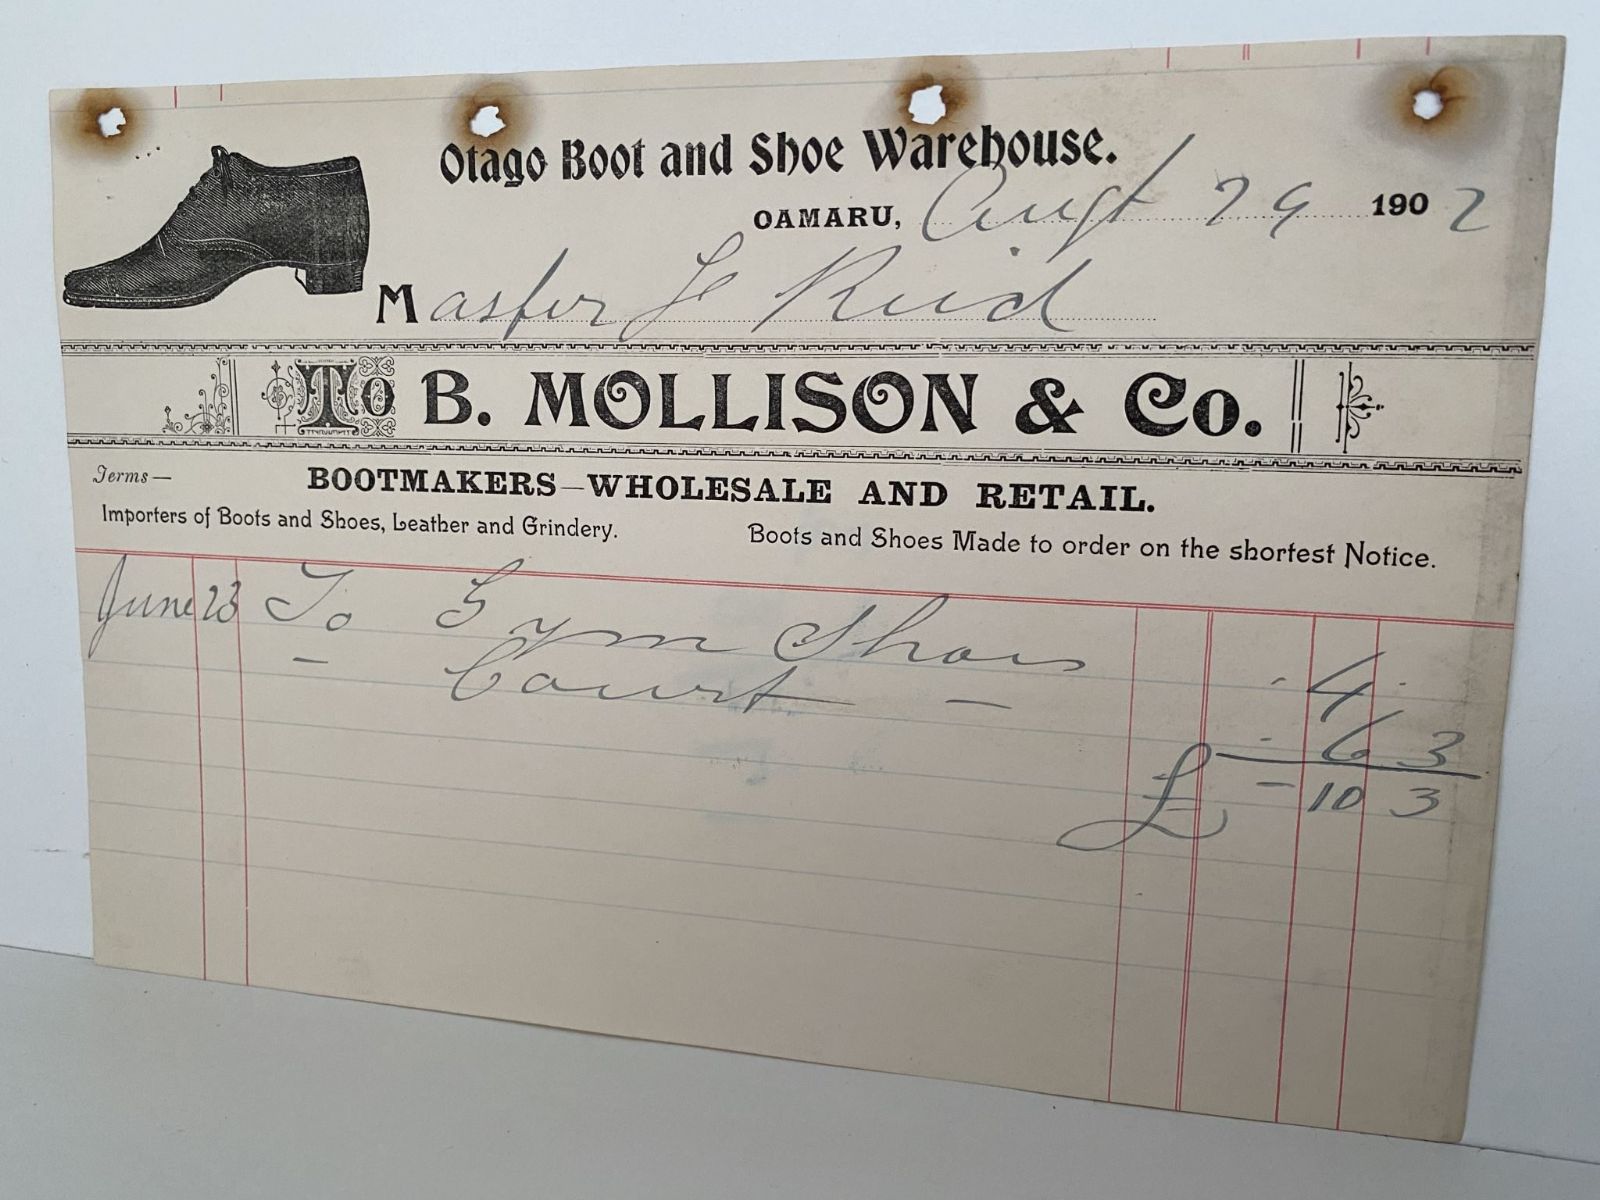 Otago Boot and Shoe Warehouse.
OAMARU, Augt 29 1902
Master J Reid
To B. MOLLISON & Co.
Terms—
BOOTMAKERS—WHOLESALE AND RETAIL.
Importers of Boots and Shoes, Leather and Grindery. Boots and Shoes Made to order on the shortest Notice.
June 23 To Gym Shoes - 4 -
- Court - - 6 3
£ - 10 3